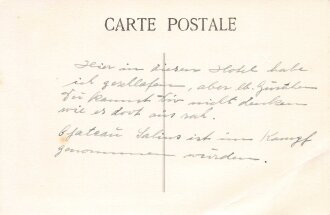 CARTE POSTALE
Hier in diesem Hotel habe
ich geschlafen, aber
Du kannst Dir nicht denken
wie es dort aus sah.
Chateau Salins ist im Kampf
genommen worden.